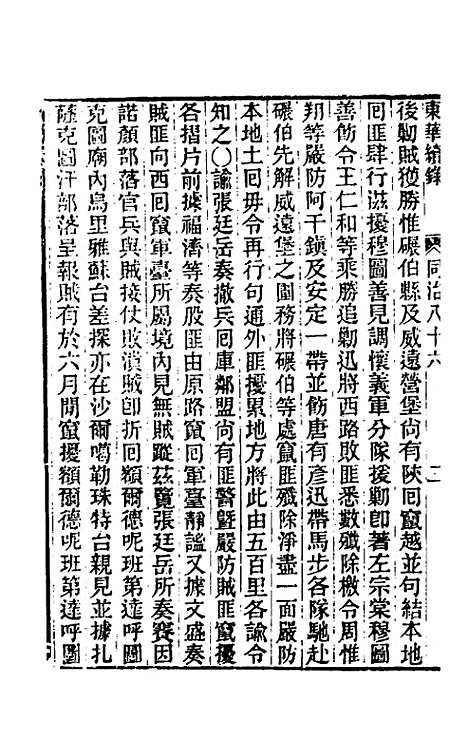 東華續錄 同治八十六 二
後勦賊獲勝惟碾伯縣及威遠營堡尚有陝回竄越並句結本地
回匪肆行滋擾穆圖善見調懷義軍分隊援勦卽著左宗棠穆圖
善飭令王仁和等乘勝追勦迅將西路敗匪悉數殲除檄令周惟
翔等嚴防阿干鎮及安定一帶並飭唐有彥迅帶馬步各隊馳赴
碾伯先解威遠堡之圍務將碾伯等處竄匪殲除淨盡一面嚴防
本地土回毋令再行句通外匪擾累地方將此由五百里各諭令
知之〇諭張廷岳奏撤兵回庫鄰盟尚有匪警曁嚴防賊匪竄擾
各摺片前據福濟等奏股匪由原路竄回軍臺靜謐又據文盛奏
賊匪向西回竄軍臺所屬境內見無賊蹤茲覽張廷岳所奏賽因
諾顏部落官兵與賊接仗敗潰賊卽折回額爾德呢班第達呼圖
克圖廟內烏里雅蘇台差探亦在沙爾噶勒珠特台親見並據扎
薩克圖汗部落呈報賊有於六月閒竄擾額爾德呢班第達呼圖